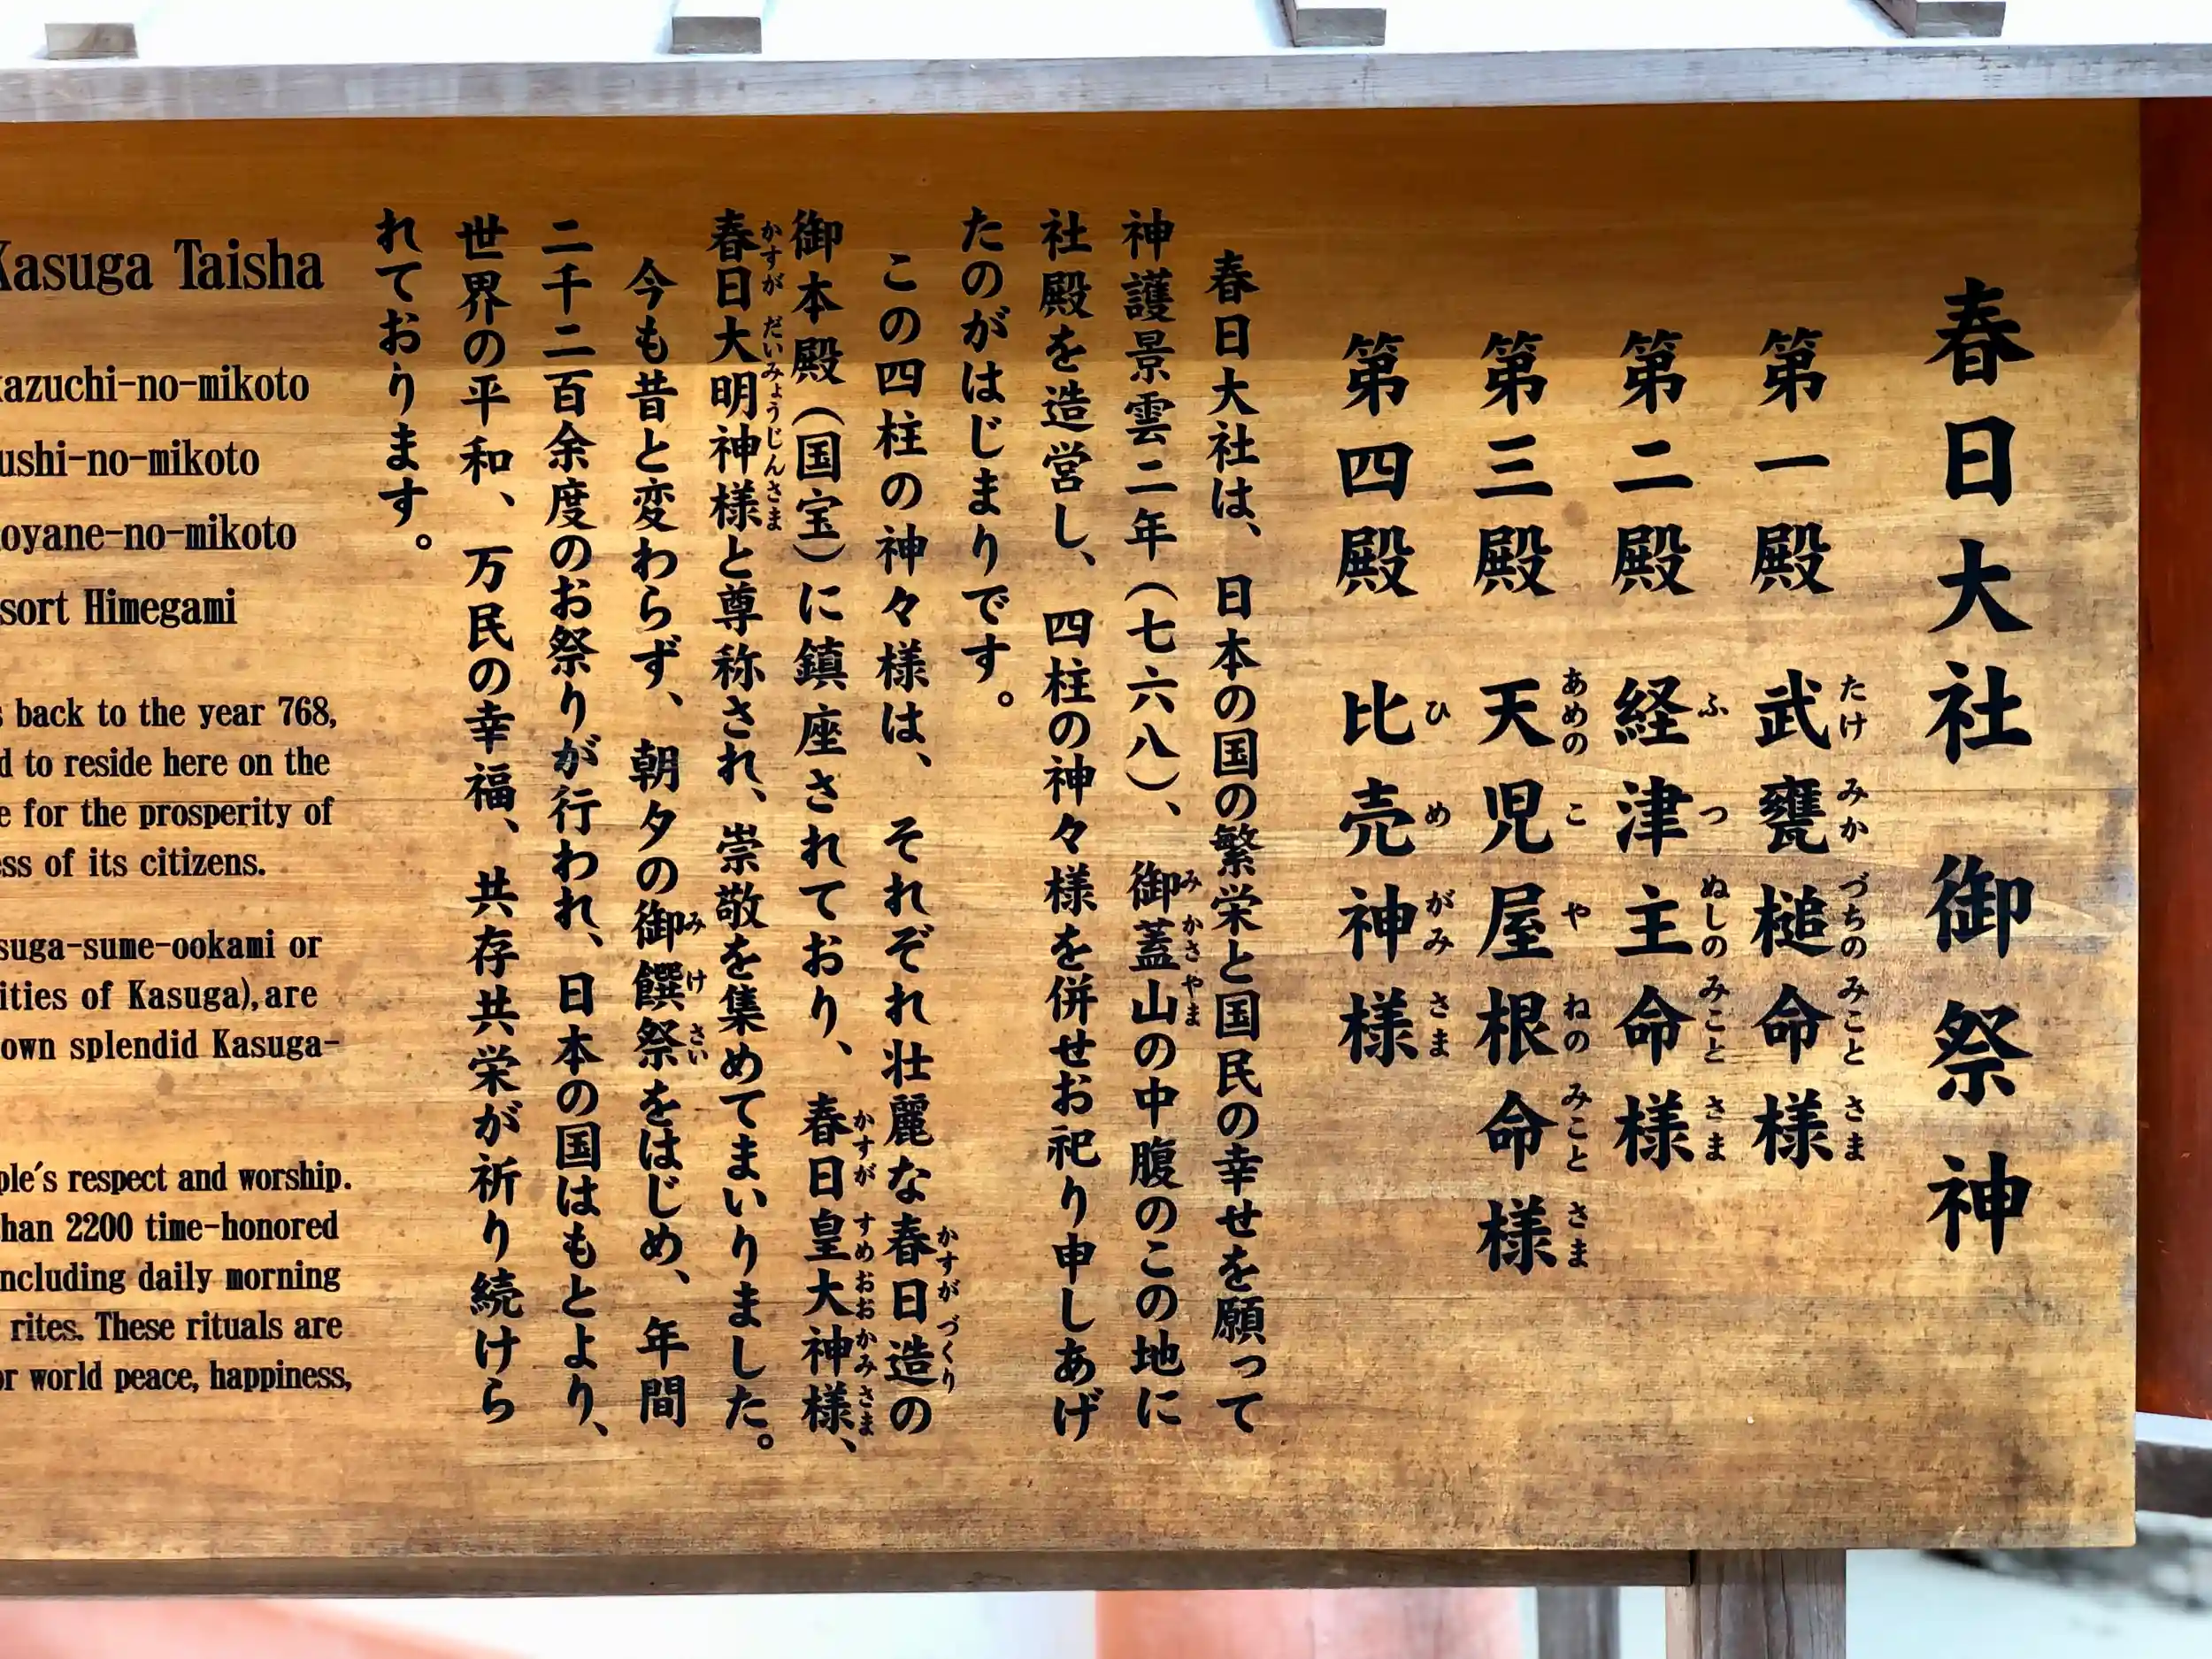 春日大社 御祭神
第一殿 武甕槌命様
たけ みか づちの みこと さま
第二殿 経津主命様
ふ つ ぬしの みこと さま
第三殿 天児屋根命様
あめの こ や ねの みこと さま
第四殿 比売神様
ひ め がみ さま
春日大社は、日本の国の繁栄と国民の幸せを願って
神護景雲二年(七六八)、御蓋山の中腹のこの地に
み かさ やま
社殿を造営し、四柱の神々様を併せお祀り申しあげ
たのがはじまりです。
この四柱の神々様は、それぞれ壮麗な春日造の
かすが づくり
御本殿(国宝)に鎮座されており、春日皇大神様、
かすが すめ おお かみ さま
春日大明神様と尊称され、崇敬を集めてまいりました。
かすが だいみょうじんさま
今も昔と変わらず、朝夕の御饌祭をはじめ、年間
み け さい
二千二百余度のお祭りが行われ、日本の国はもとより、
世界の平和、万民の幸福、共存共栄が祈り続けら
れております。
Kasuga Taisha
kazuchi-no-mikoto
ushi-no-mikoto
oyane-no-mikoto
sort Himegami
s back to the year 768,
d to reside here on the
e for the prosperity of
ess of its citizens.
suga-sume-ookami or
ities of Kasuga),are
own splendid Kasuga-
ple's respect and worship.
han 2200 time-honored
ncluding daily morning
rites. These rituals are
or world peace, happiness,